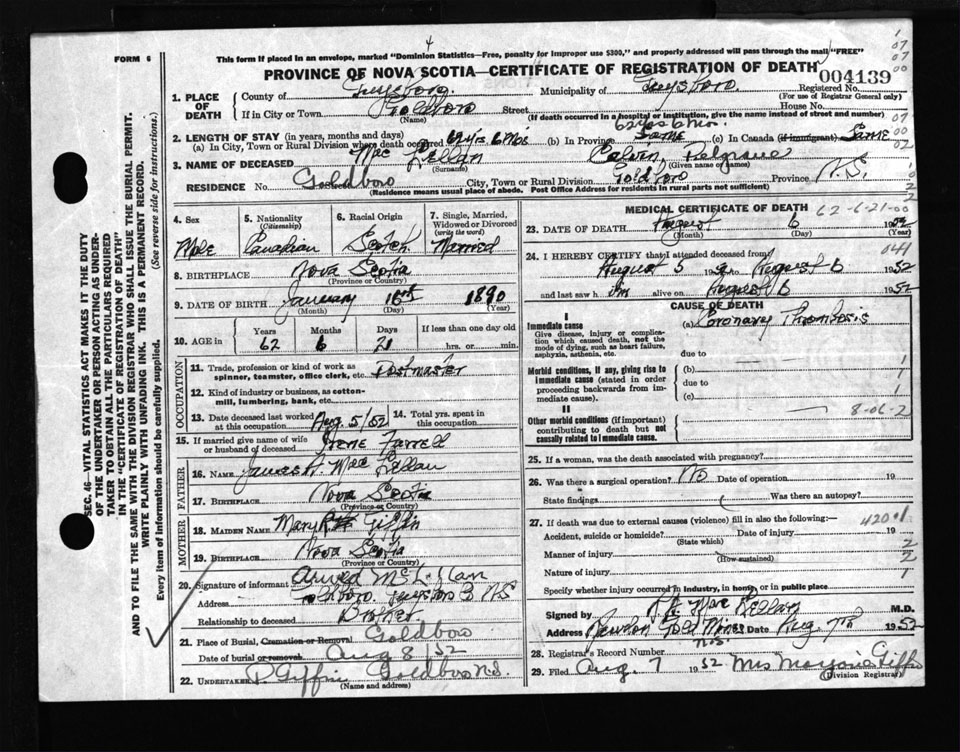 4
FORM 6
This form if placed in an envelope, marked "Dominion Statistics—Free, penalty for improper use $300," and properly addressed will pass through the mail "FREE"
PROVINCE OF NOVA SCOTIA—CERTIFICATE OF REGISTRATION OF DEATH
004139
1. PLACE OF DEATH
County of Guysboro Municipality of Guysboro Registered No.
(For use of Registrar General only)
If in City or Town Goldboro Street House No.
(Name) (If death occurred in a hospital or institution, give the name instead of street and number)
2. LENGTH OF STAY (in years, months and days) 62 yrs 6 mo.
(a) In City, Town or Rural Division where death occurred 62 yrs. 6 Mos (b) In Province Same (c) In Canada (if immigrant) Same
3. NAME OF DECEASED Mac Lellan Calvin Belgrave
(Surname) (Given name or names)
RESIDENCE No. Goldboro City, Town or Rural Division Goldboro Province N.S.
(Residence means usual place of abode. Post Office Address for residents in rural parts not sufficient)
4. Sex Male
5. Nationality (Citizenship) Canadian
6. Racial Origin Scotch
7. Single, Married, Widowed or Divorced (write the word) Married
8. BIRTHPLACE Nova Scotia
(Province or Country)
9. DATE OF BIRTH January 16th 1890
(Month) (Day) (Year)
10. AGE in Years Months Days If less than one day old
62 6 21 hrs. or min.
OCCUPATION
11. Trade, profession or kind of work as spinner, teamster, office clerk, etc. Postmaster
12. Kind of industry or business, as cotton-mill, lumbering, bank, etc.
13. Date deceased last worked at this occupation Aug. 5/52
14. Total yrs. spent in this occupation
15. If married give name of wife or husband of deceased Irene Farrell
FATHER
16. NAME James H. Mac Lellan
17. BIRTHPLACE Nova Scotia
(Province or Country)
MOTHER
18. MAIDEN NAME Mary Giffin
19. BIRTHPLACE Nova Scotia
(Province or Country)
20. Signature of informant McLellan
Address Goldboro, Guysboro Co NS
Relationship to deceased Brother
21. Place of Burial, Cremation or Removal Goldboro
Date of burial or removal Aug 8/52
22. UNDERTAKER Giffin Goldboro N.S.
(Name and address)
MEDICAL CERTIFICATE OF DEATH
62-6-21-00
23. DATE OF DEATH August 6 1952
(Month) (Day) (Year)
041
24. I HEREBY CERTIFY that I attended deceased from
August 5 1952 August 6 1952
and last saw h im alive on August 6 1952
CAUSE OF DEATH
I
Immediate cause (a) Coronary Thrombosis
Give disease, injury or complication which caused death, not the mode of dying, such as heart failure, asphyxia, asthenia, etc.
due to
Morbid conditions, if any, giving rise to immediate cause (stated in order proceeding backwards from immediate cause).
(b) 1
due to 1
(c) 1
II
Other morbid conditions (if important) contributing to death but not causally related to immediate cause.
8-06-2
25. If a woman, was the death associated with pregnancy?
26. Was there a surgical operation? No Date of operation 19
State findings Was there an autopsy?
27. If death was due to external causes (violence) fill in also the following:—
420.1
Accident, suicide or homicide? Date of injury 19
(State which)
Manner of injury 2
(How sustained)
Nature of injury 1
Specify whether injury occurred in industry, in home, or in public place
Signed by Mac Lellan M.D.
Address Gold Mines Date Aug. 7th 1952
N.S.
28. Registrar's Record Number
29. Filed Aug. 7 1952 Mrs Marjorie Giffin
(Division Registrar)
SEC. 46—VITAL STATISTICS ACT MAKES IT THE DUTY OF THE UNDERTAKER OR PERSON ACTING AS UNDERTAKER TO OBTAIN ALL THE PARTICULARS REQUIRED IN THE "CERTIFICATE OF REGISTRATION OF DEATH"
AND TO FILE THE SAME WITH THE DIVISION REGISTRAR WHO SHALL ISSUE THE BURIAL PERMIT.
WRITE PLAINLY WITH UNFADING INK. THIS IS A PERMANENT RECORD.
Every item of information should be carefully supplied. (See reverse side for instructions.)